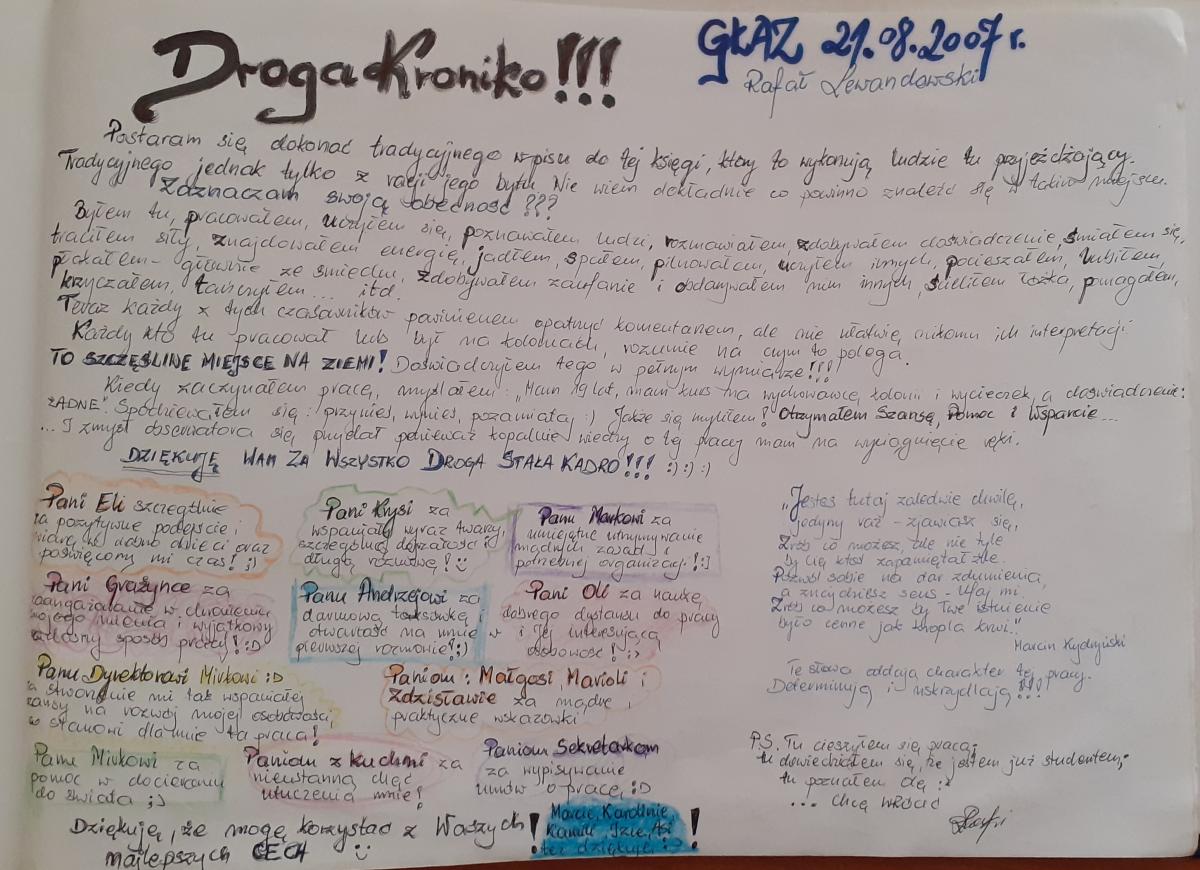 Droga Kroniko!!!
GŁAZ 21.08.2007 r.
Rafał Lewandowski
Postaram się dokonać tradycyjnego wpisu do tej księgi, który to wykonują ludzie tu przyjeżdżający.
Tradycyjnego jednak tylko z racji jego bytu. Nie wiem dokładnie co powinno znaleźć się w takim miejscu.
Zaznaczam swoją obecność???
Byłem tu, pracowałem, uczyłem się, poznawałem ludzi, rozmawiałem, zdobywałem doświadczenie, śmiałem się,
traciłem siły, znajdowałem energię, jadłem, spałem, pilnowałem, uczyłem innych, pocieszałem, lubiłem,
płakałem - głównie ze śmiechu, zdobywałem zaufanie i obdarywałem nim innych, ścieliłem łóżka, pomagałem,
krzyczałem, tańczyłem... itd.
Teraz każdy z tych czasowników powinienem opatrzyć komentarzem, ale nie ułatwię nikomu ich interpretacji
Każdy kto tu pracował lub był na koloniach, rozumie na czym to polega.
TO SZCZĘŚLIWE MIEJSCE NA ZIEMI! Doświadczyłem tego w pełnym wymiarze!!!
Kiedy zaczynałem pracę, myślałem: „Mam 19 lat, mam kurs na wychowawcę kolonii i wycieczek, a doświadczenie:
ŻADNE". Spodziewałem się: przynieś, wynieś, pozamiataj :) Jakże się myliłem! Otrzymałem Szansę, Pomoc i Wsparcie...
... I zmysł obserwatora się przydał ponieważ kopalnię wiedzy o tej pracy mam na wyciągnięcie ręki.
DZIĘKUJĘ WAM ZA WSZYSTKO DROGA STAŁA KADRO!!! :) :) :)
Pani Eli szczególnie
za pozytywne podejście,
wiarę w dobro dzieci oraz
poświęcony mi czas! ;)
Pani Krysi za
wspaniały wyraz twarzy,
szczególną dojrzałość i
długą rozmowę!
Panu Markowi za
umiejętne utrzymywanie
mądrych zasad i
potrzebnej organizacji! :]
Pani Grażynce za
zaangażowanie w chwaleniu
mojego imienia i wyjątkowy
własny sposób pracy! :D
Panu Andrzejowi za
darmową taksówkę i
otwartość na mnie w
pierwszej rozmowie! ;)
Pani Oli za naukę
dobrego dystansu do pracy
i Jej interesującą
osobowość! ;>
Panu Dyrektorowi Mirkowi :D
za stworzenie mi tak wspaniałej
szansy na rozwój mojej osobowości,
co stanowi dla mnie ta praca!
Paniom: Małgosi, Marioli i
Zdzisławie za mądre,
praktyczne wskazówki
Panu Mirkowi za
pomoc w docieraniu
do świata ;)
Paniom z kuchni za
nieustanną chęć
utuczenia mnie!
Paniom Sekretarkom
za wypisywanie
umów o pracę, :D
Dziękuję, że mogę korzystać z Waszych
najlepszych CECH
! Marcie, Karolinie,
Kamili, Izie, Asi
też dziękuję !
„Jesteś tutaj zaledwie chwilę,
jedyny raz - zjawiasz się,
Zrób co możesz, ale nie tyle
by Cię ktoś zapamiętał źle.
Pozwól sobie na dar zdumienia,
a znajdziesz sens - Ufaj mi.
Zrób co możesz by Twe istnienie
było cenne jak kropla krwi."
Marcin Kydryński
Te słowa oddają charakter tej pracy.
Determinują i uskrzydlają!!!
P.S. Tu cieszyłem się pracą;
tu dowiedziałem się, że jestem już studentem;
tu poznałem Cię :*
... chcę wrócić